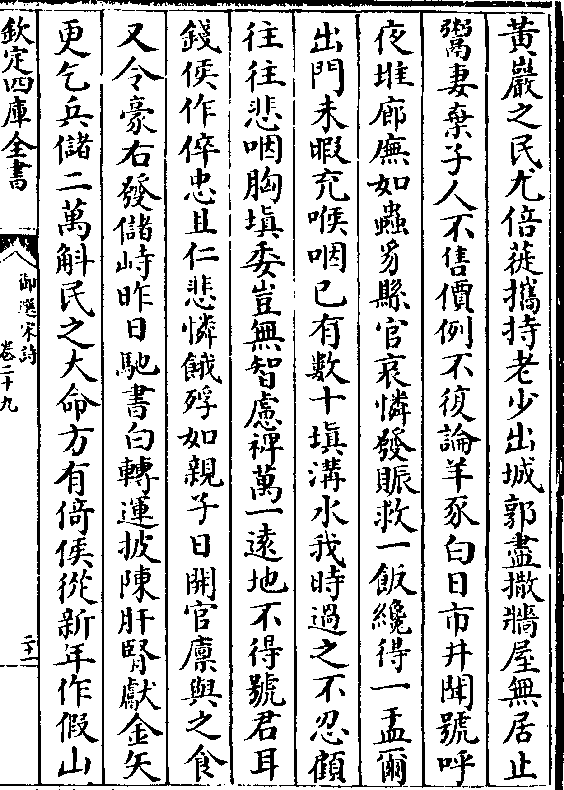 黃巖之民尤倍蓰攜持老少出城郭盡撒牆屋無居止
鬻妻棄子人不售價例不復論羊豕白日市井聞號呼
夜堆廊廡如蟲豸縣官哀憐發賑救一飯纔得一盂爾
出門未暇充喉咽已有數十塡溝水我時過之不忍顧
往往悲咽胸塡委豈無智慮裨萬一遠地不得號君耳
錢侯作倅忠且仁悲憐餓殍如親子日開官廪與之食
又令豪右發儲峙昨日馳書白轉運披陳肝腎獻金矢
更乞兵儲二萬斛民之大命方有倚侯從新年作假山
欽定四庫全書
御選宋詩
卷二十九
二十一